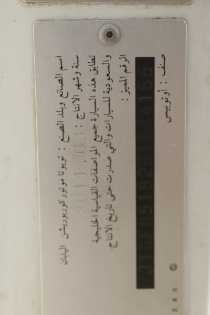 اسم الصانع وبلد الصنع : تويوتا موتور كوربوريشن اليابان
سنة وشهر الانتاج :
تطابق هذه السيارة جميع المواصفات القياسية الخليجية
والسعودية للسيارات والتي صدرت حتى تاريخ الانتاج
الرقم المميز :
صنف : أوتوبيس